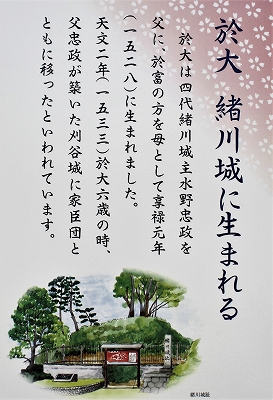 於大 緒川城に生まれる
於大は四代緒川城主水野忠政を
父に、於富の方を母として享禄元年
(一五二八)に生まれました。
天文二年(一五三三)於大六歳の時、
父忠政が築いた刈谷城に家臣団と
ともに移ったといわれています。
緒川城趾